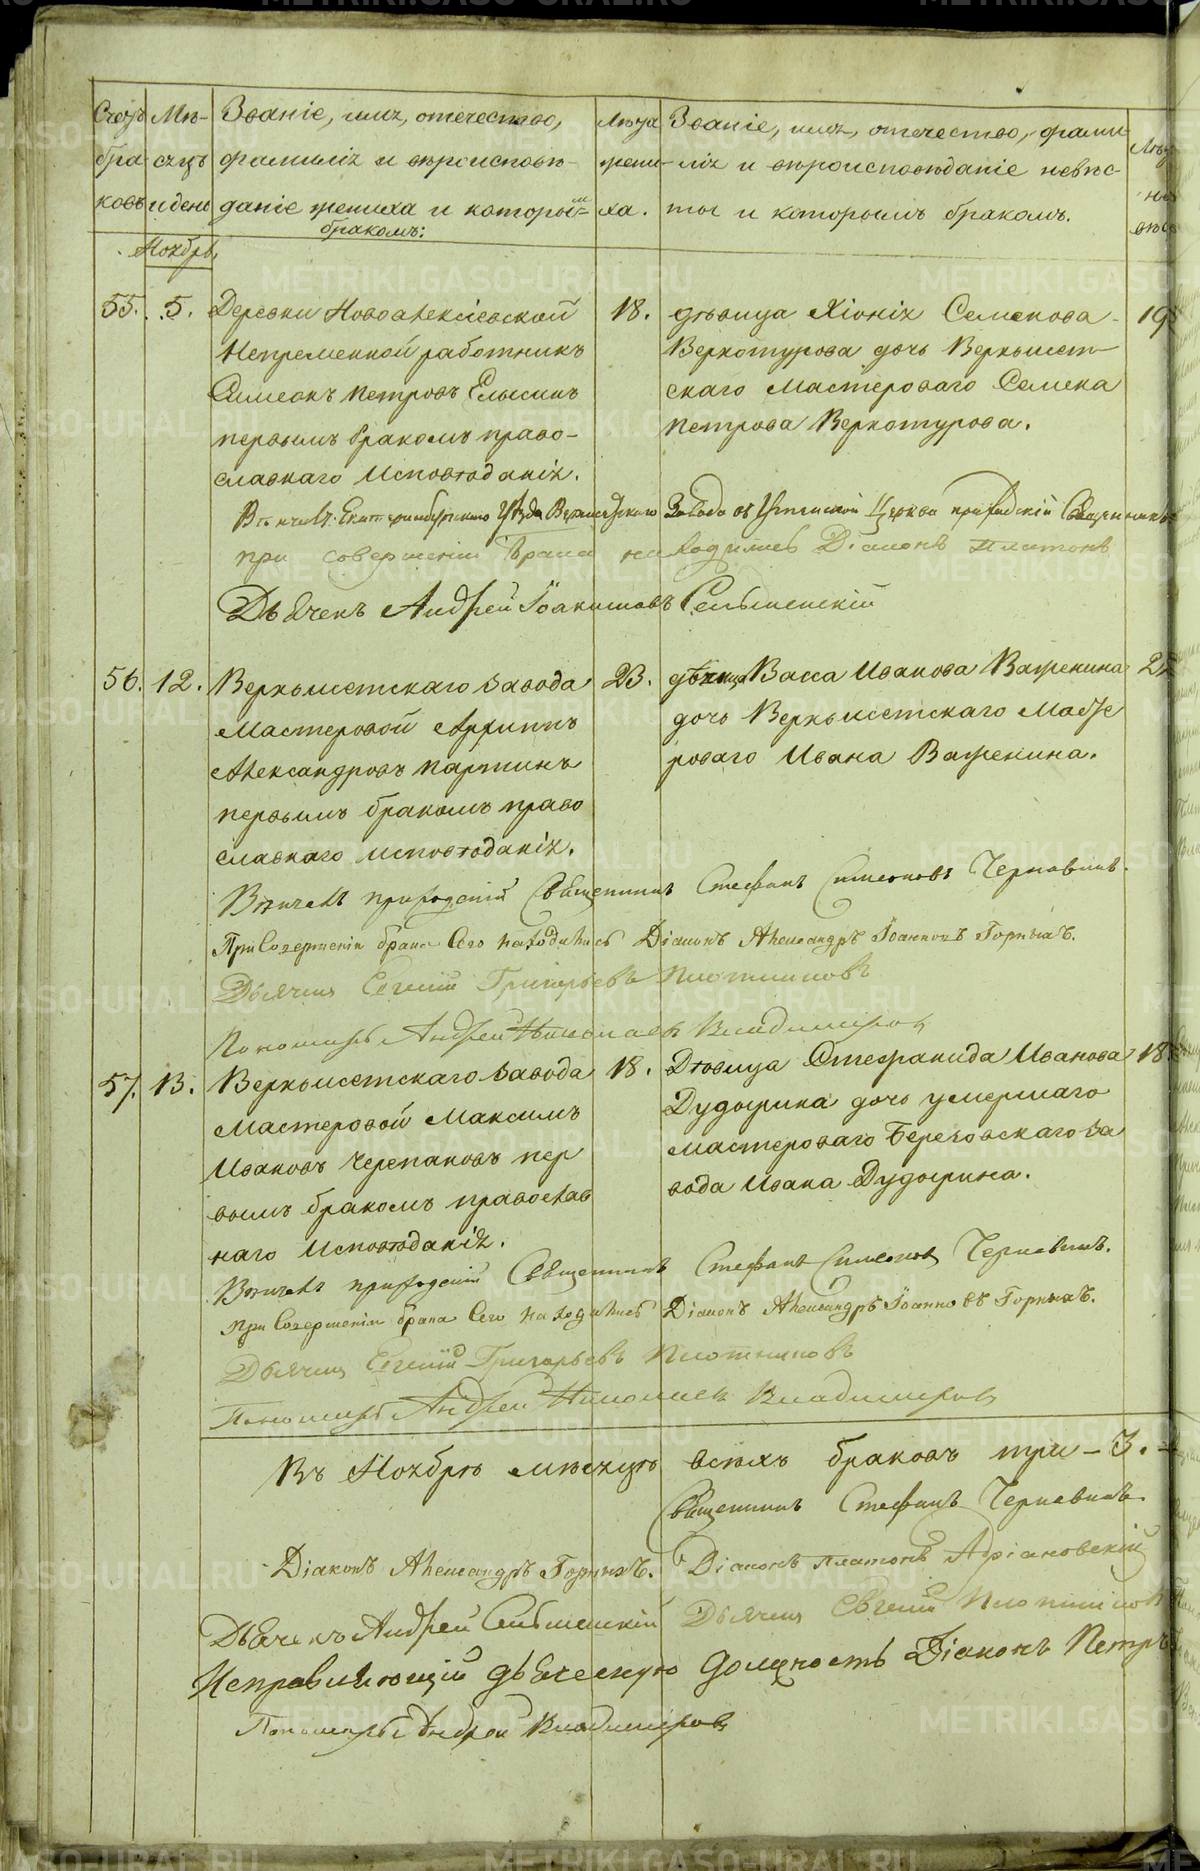 Счетъ браковъ
Мѣсяцъ и день
Званіе, имя, отечество, фамилія и вѣроисповѣданіе жениха и которымъ бракомъ:
Лѣта жениха.
Званіе, имя, отечество, фамилія и вѣроисповѣданіе невѣсты и которымъ бракомъ.
Ноябрь
55. 5. Деревни Новоалексіевской 18. дѣвица Хіонія Семенова 19
Непременной работникъ Верхотурова дочь Верхъисет-
Симеонъ Петровъ Елысинъ скаго Мастероваго Семена
первымъ бракомъ право- Петрова Верхотурова.
славнаго Исповѣданія.
Вѣнчалъ: Екатеринбургскаго Уѣзда Завода въ Успенской Церкви приходскій Священникъ
при совершеніи Брака находились Діаконъ Платонъ
Дьячекъ Андрей Іоакимовъ Сельменскій
56. 12. Верхъисетскаго завода 23. дѣвица Васса Иванова Важенина
Мастеровой Архиппъ дочь Верхъисетскаго Мастероваго
Александровъ Паршинъ Ивана Важенина.
первымъ бракомъ право
славнаго исповѣданія.
Вѣнчалъ приходскій Священникъ Стефанъ Симеоновъ Чернавинъ.
При Совершеніи брака Сего находились Діаконъ Александръ Іоанновъ Горныхъ.
Дьячекъ Евгеній Григорьевъ Плотниковъ
Пономарь Андрей Николаевъ Владимировъ
57. 13. Верхъисетскаго завода 18. Дѣвица Стефанида Иванова 18
Мастеровой Максимъ Дудырина дочь умершаго
Ивановъ Черепановъ пер мастероваго Березовскаго за
вымъ бракомъ православ вода Ивана Дудырина.
наго Исповѣданія.
Вѣнчалъ приходскій Священникъ Стефанъ Симеоновъ Чернавинъ.
При Совершеніи брака Сего находились Діаконъ Александръ Іоанновъ Горныхъ.
Дьячекъ Евгеній Григорьевъ Плотниковъ
Пономарь Андрей Николаевъ Владимировъ
Въ Ноябрѣ мѣсяцѣ всѣхъ браковъ три – 3. –
Священникъ Стефанъ Чернавинъ.
Діаконъ Александръ Горныхъ. Діаконъ Платонъ Адріановскій
Дьячекъ Андрей Сельменскій Дьячекъ Евгеній Плотниковъ
Исправляющій дьяческую должность Діаконъ Петръ
Пономарь Андрей Владимировъ
METRIKI.GASO-URAL.RU